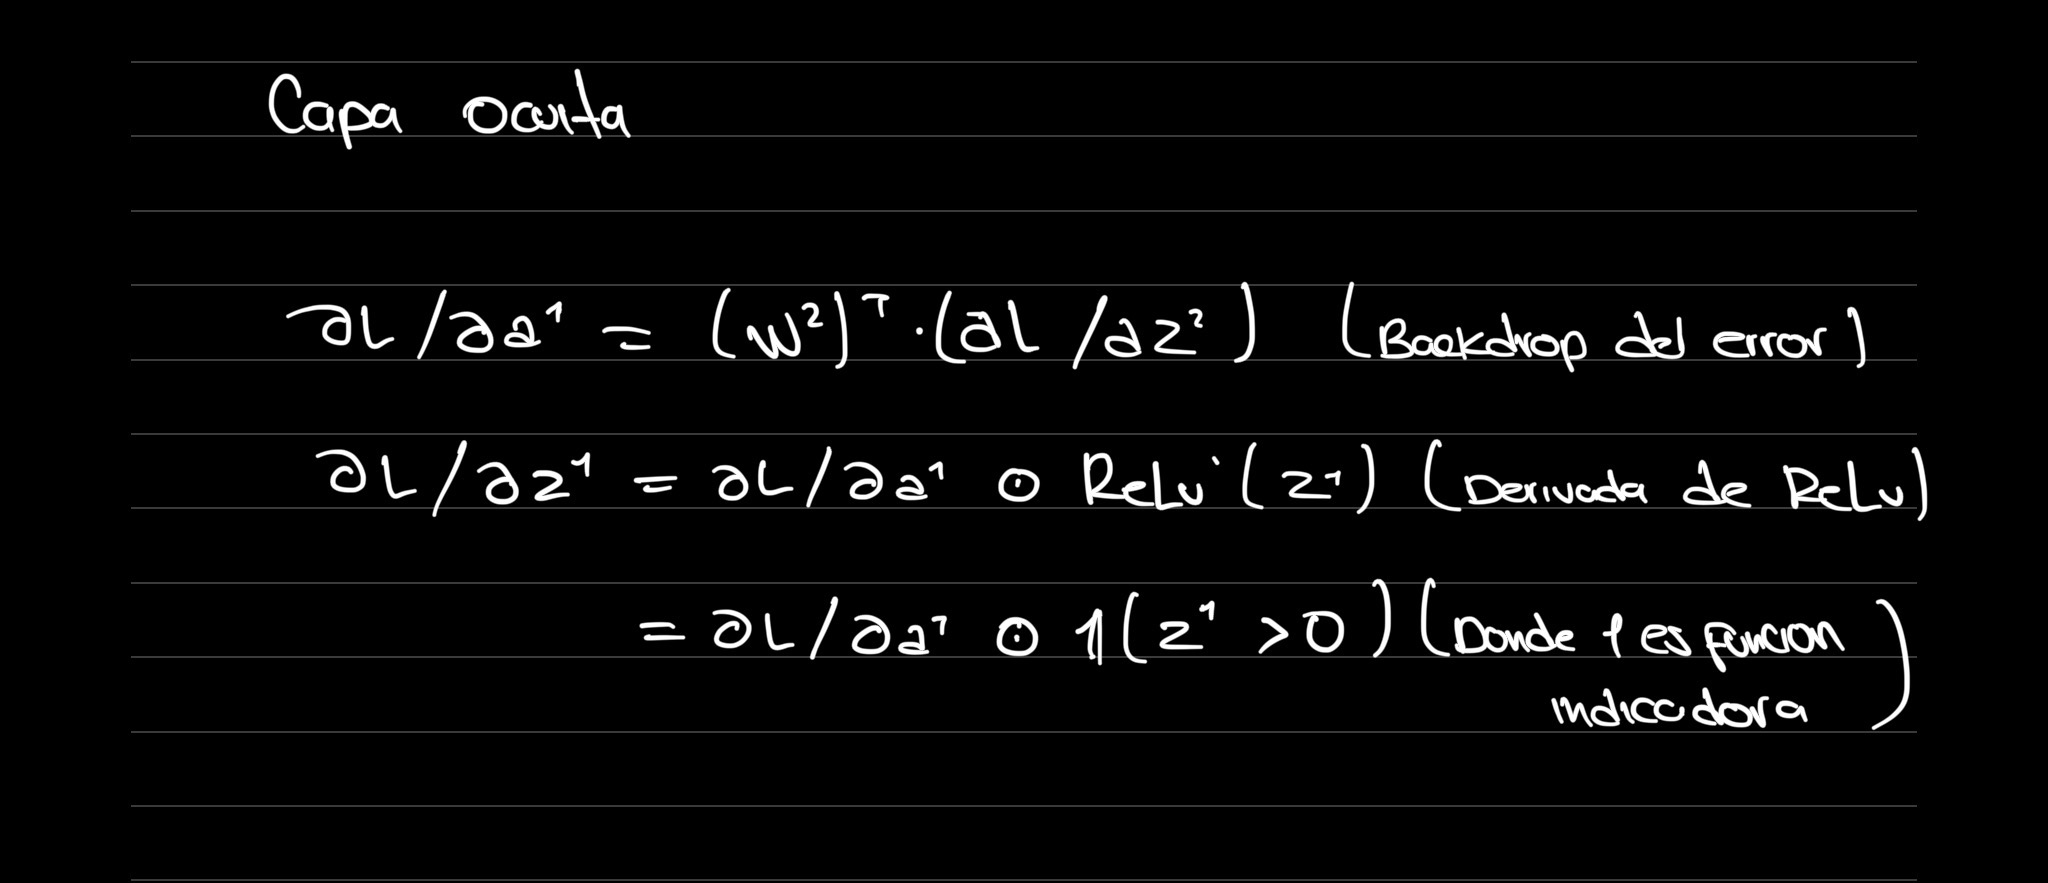 Capa oculta
∂L/∂a¹ = (W²)ᵀ · (∂L/∂z²) (Backdrop del error)
∂L/∂z¹ = ∂L/∂a¹ ⊙ ReLu'(z¹) (Derivada de ReLu)
= ∂L/∂a¹ ⊙ 𝟙(z¹ > 0) (Donde 1 es funcion
indicadora)